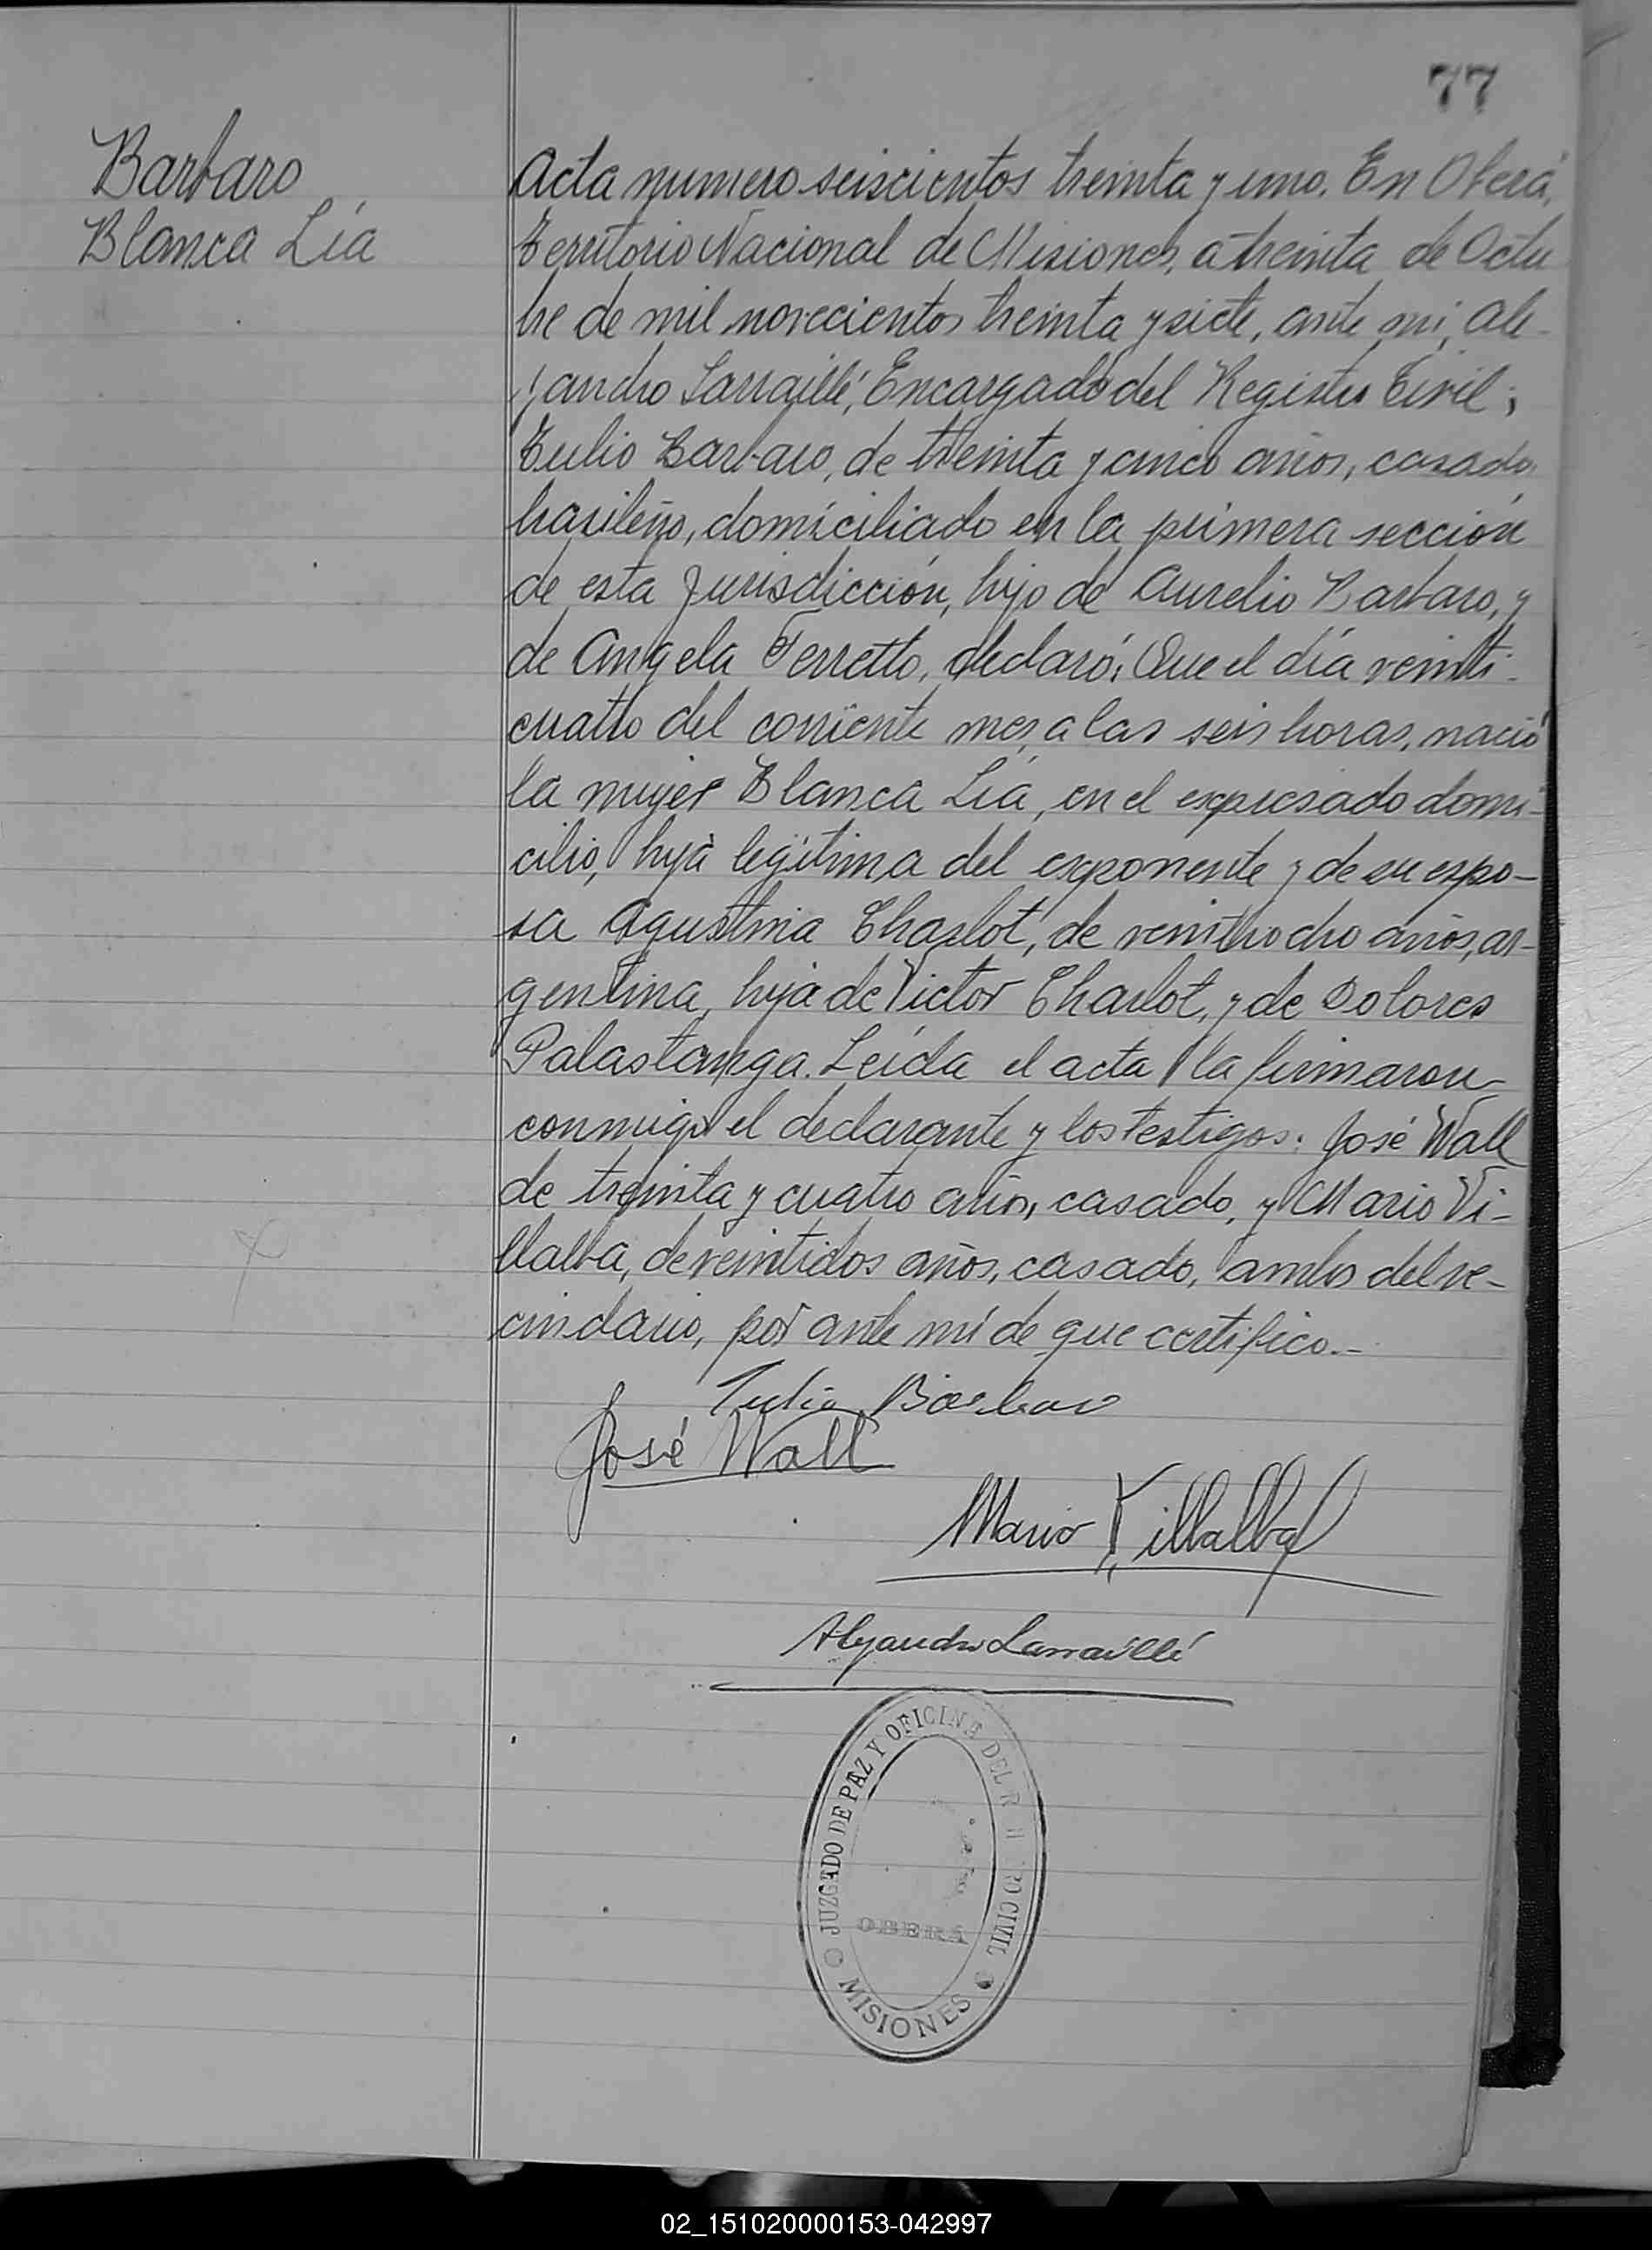 77
Barbaro
Blanca Lía
Acta numero seiscientos treinta y uno. En Oberá,
Territorio Nacional de Misiones, a treinta de Octu
bre de mil novecientos treinta y siete, ante mi, Ale-
jandro Larraillé, Encargado del Registro Civil;
Tulio Barbaro, de treinta y cinco años, casado,
brasileño, domiciliado en la primera sección
de esta Jurisdicción, hijo de Aurelio Barbaro, y
de Angela Ferretto, declaró: Que el día veinti-
cuatro del corriente mes, a las seis horas, nació
la mujer Blanca Lía, en el expresado domi-
cilio, hija legítima del exponente y de su espo-
sa Agustina Charlot, de veintiocho años, ar-
gentina, hija de Victor Charlot, y de Dolores
Palastanga. Leída el acta la firmaron
conmigo el declarante y los testigos: José Wall
de treinta y cuatro años, casado, y Mario Vi-
llalba, de veintidos años, casado, ambos del ve-
cindario, por ante mí de que certifico.-
Tulio Barbaro
José Wall
Mario Villalba
Alejandro Larraillé
JUZGADO DE PAZ Y OFICINA DEL R RO CIVIL
OBERÁ
MISIONES
02_151020000153-042997